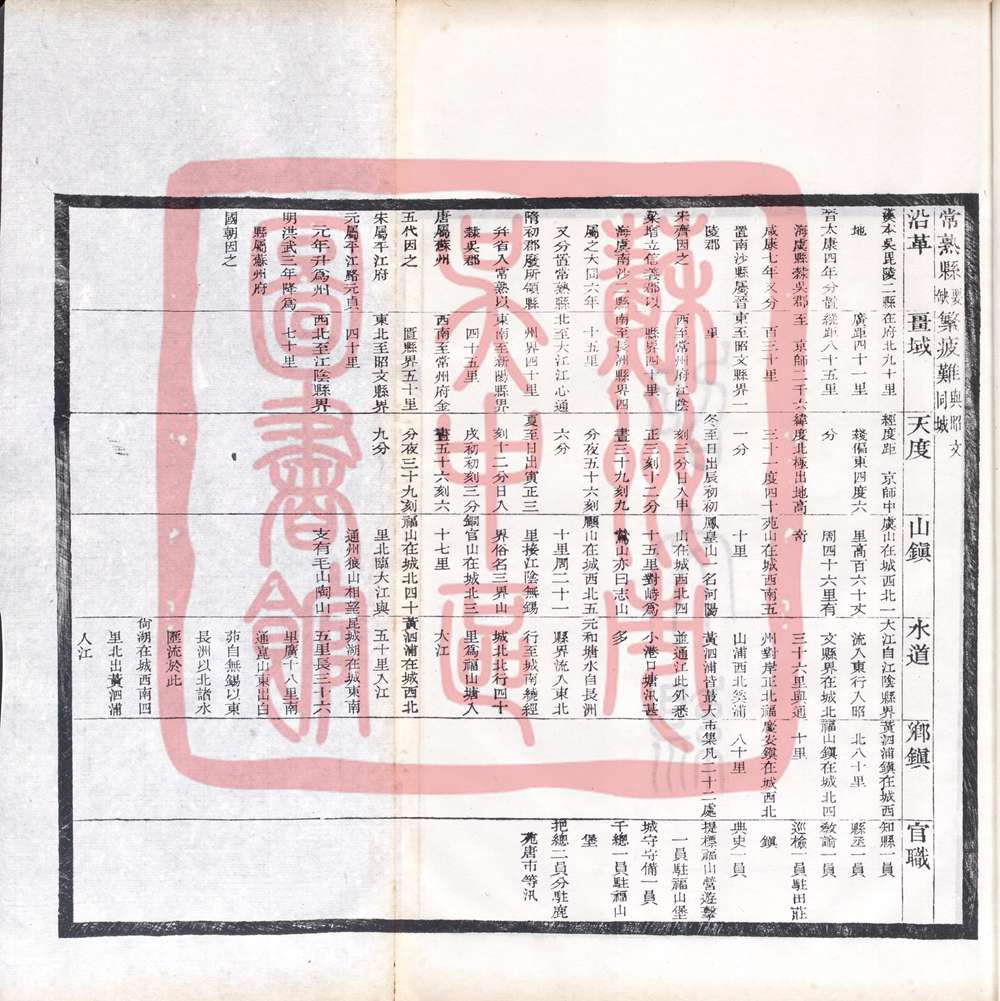 常熟縣 要缺 繁疲難 與昭文同城
沿革
漢本吳毘陵二縣
地
晉太康四年分置
海虞縣隸吳郡
咸康七年又分
置南沙縣屬晉
陵郡
宋齊因之
梁增立信義郡以
海虞南沙二縣
屬之大同六年
又分置常熟縣
隋初郡廢所領縣
并省入常熟以
隸吳郡
唐屬蘇州
五代因之
宋屬平江府
元屬平江路元貞
元年升爲州
明洪武三年降爲
縣屬蘇州府
國朝因之
疆域
在府北九十里
廣距四十一里
縱距八十五里
至 京師二千六
百三十里
東至昭文縣界一
里
西至常州府江陰
縣界四十里
南至長洲縣界四
十五里
北至大江江心通
州界四十里
東南至新陽縣界
四十五里
西南至常州府金
匱縣界五十里
東北至昭文縣界
四十里
西北至江陰縣界
七十里
天度
經度距 京師中
綫偏東四度六
分
緯度北極出地高
三十一度四十
一分
冬至日出辰初初
刻三分日入申
正三刻十二分
晝三十九刻九
分夜五十六刻
六分
夏至日出寅正三
刻十二分日入
戌初初刻三分
晝五十六刻六
分夜三十九刻
九分
山鎮
虞山在城西北一
里高百六十丈
周四十六里有
奇
苑山在城西南五
十里
鳳皇山一名河陽
山在城西北四
十五里對峙爲
鷲山亦曰志山
顧山在城西北五
十里周二十一
里接江陰無錫
界俗名三界山
銅官山在城北三
十七里
福山在城北四十
里北臨大江與
通州狼山相望
支有毛山陶山
水道
大江自江陰縣界
流入東行入昭
文縣界在城北
三十六里與通
州對岸正北福
山浦西北奚浦
黃泗浦皆最大
並通江此外悉
小港口塘汛甚
多
元和塘水自長洲
縣界流入東北
行至城南繞經
城北北行四十
里爲福山塘入
大江
黃泗浦在城西北
五十里入江
昆城湖在城東南
五里長三十六
里廣十八里南
通嵐山東出白
茆自無錫以東
長洲以北諸水
匯流於此
尙湖在城西南四
里北出黃泗浦
入江
鄉鎮
黃泗浦鎮在城西
北八十里
福山鎮在城北四
十里
慶安鎮在城西北
八十里
市集凡二十二處
官職
知縣一員
縣丞一員
敎諭一員
巡檢一員駐田莊
鎮
典史一員
提標福山營遊擊
一員駐福山堡
城守守備一員
千總一員駐福山
堡
把總二員分駐鹿
苑唐市等汛
圖書館